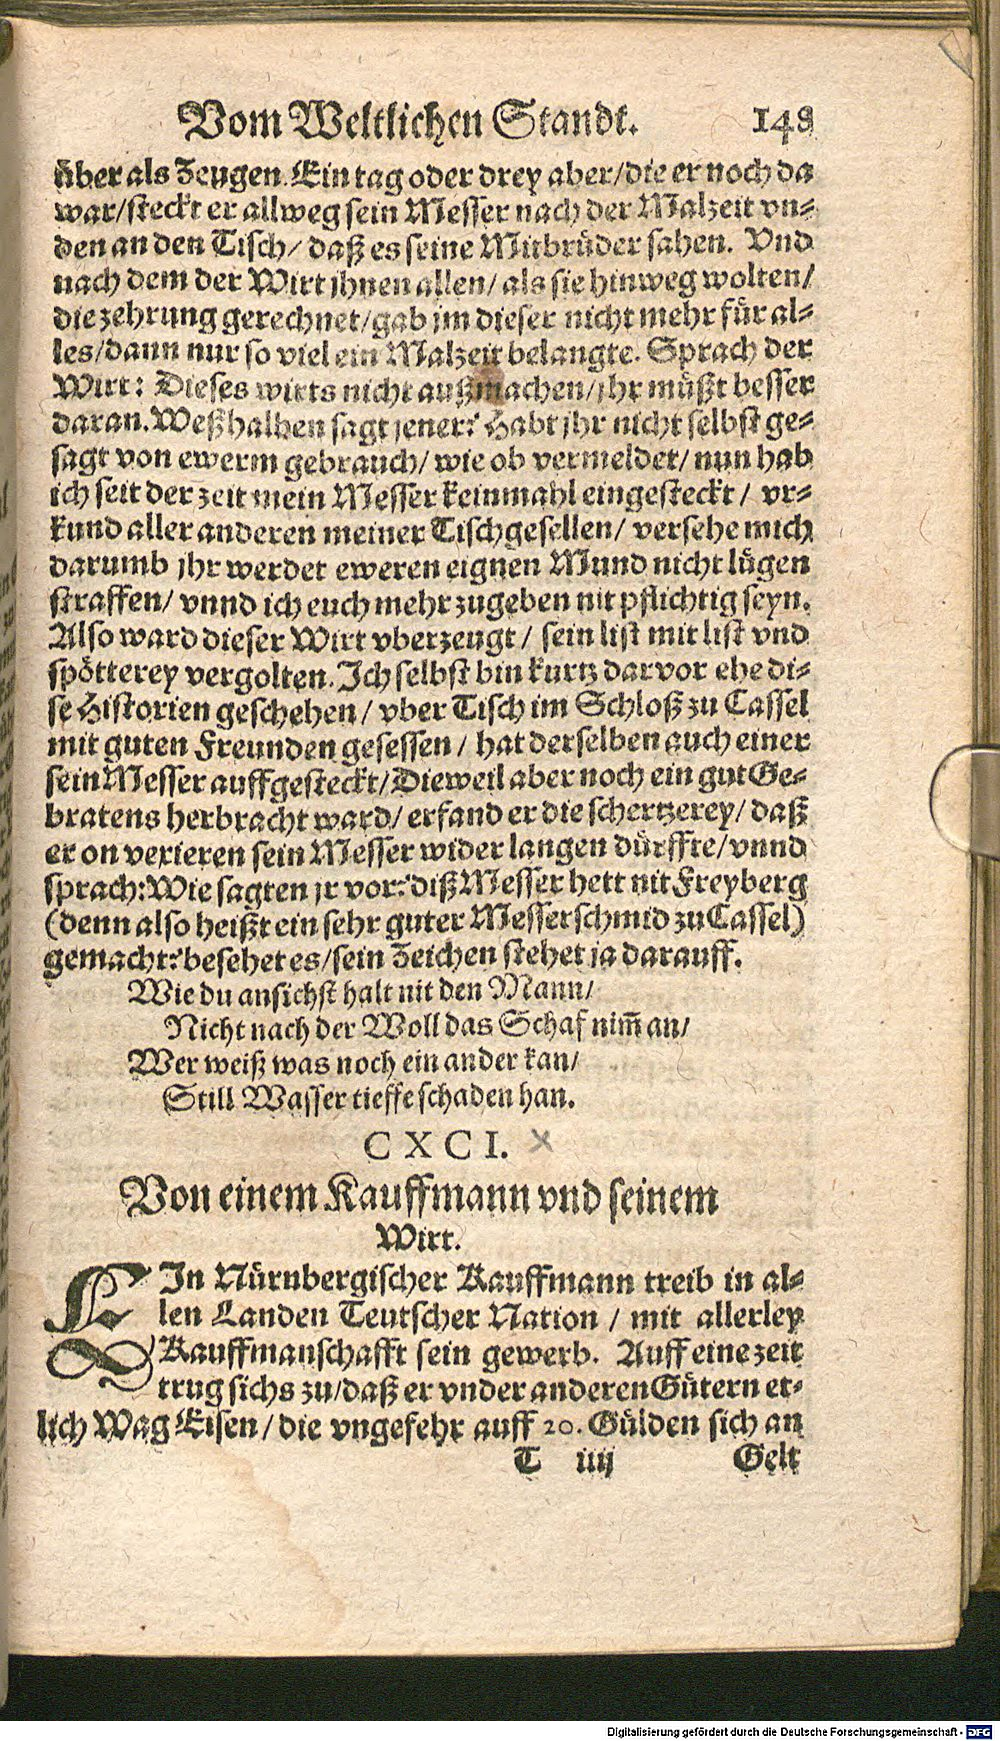 Vom Weltlichen Standt. 148
über als Zeugen. Ein tag oder drey aber/die er noch da
war/steckt er allweg sein Messer nach der Malzeit vn⸗
den an den Tisch/ daß es seine Mitbrüder sahen. Vnd
nach dem der Wirt jhnen allen/ als sie hinweg wolten/
die zehrung gerechnet/gab jm dieser nicht mehr für al⸗
les/dann nur so viel ein Malzeit belangte. Sprach der
Wirt: Dieses wirts nicht außmachen/jhr müßt besser
daran. Weßhalben sagt jener? Habt jhr nicht selbst ge⸗
sagt von ewerm gebrauch/ wie ob vermeldet/ nun hab
ich seit der zeit mein Messer keinmahl eingesteckt / vr⸗
kund aller anderen meiner Tischgesellen/ versehe mich
darumb jhr werdet eweren eignen Mund nicht lügen
straffen/ vnnd ich euch mehr zugeben nit pflichtig seyn.
Also ward dieser Wirt vberzeugt / sein list mit list vnd
spötterey vergolten. Ich selbst bin kurtz darvor ehe di⸗
se Historien geschehen / vber Tisch im Schloß zu Cassel
mit guten Freunden gesessen / hat derselben auch einer
sein Messer auffgesteckt/Dieweil aber noch ein gut Ge⸗
bratens herbracht ward/ erfand er die schertzerey/ daß
er on vexieren sein Messer wider langen dürffte/vnnd
sprach: Wie sagten jr vor? diß Messer hett nit Freyberg
(denn also heißt ein sehr guter Messerschmid zu Cassel)
gemacht? besehet es/sein Zeichen stehet ja darauff.
Wie du ansichst halt nit den Mann/
Nicht nach der Woll das Schaf nim̄ an/
Wer weiß was noch ein ander kan/
Still Wasser tieffe schaden han.
CXCI.
Von einem Kauffmann vnd seinem
Wirt.
EIn Nürnbergischer Kauffmann treib in al⸗
len Landen Teutscher Nation / mit allerley
Kauffmanschafft sein gewerb. Auff eine zeit
trug sichs zu/daß er vnder anderen Gütern et⸗
lich Wag Eisen/ die vngefehr auff 20. Gülden sich an
T iiij Gelt
Digitalisierung gefördert durch die Deutsche Forschungsgemeinschaft - DFG